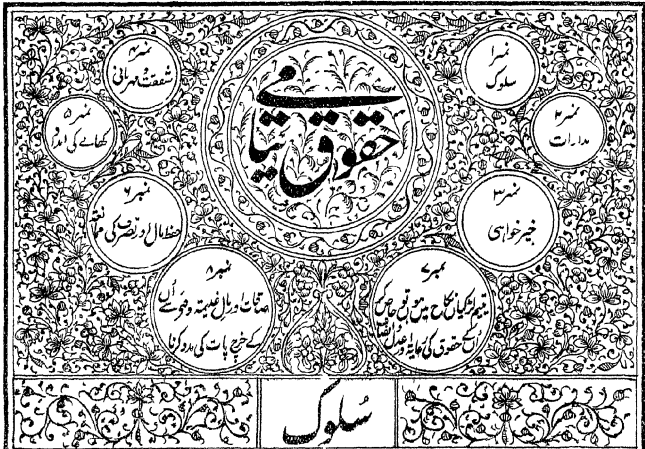 حقوق یتامٰی
نمبر۱
سلوک
نمبر۲
مدارات
نمبر۳
خیر خواہی
نمبر۴
شفقت و مہربانی
نمبر۵
کھانے کی امداد
نمبر۶
حفظ مال اور تصرف کی ممانعت
نمبر۷
یتیم لڑکیاں نکاح میں ہوں تو خاص کر
اُنکے حقوق کی رعایت اور عدل
نمبر۸
صدقات اور مال غنیمت وفئ سے اُن
کے خرچ بات کی مدد کرنا
سُلوک